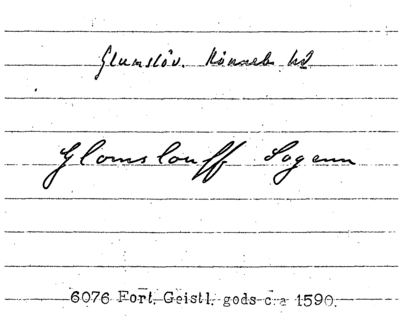 Glumslöv. Rönneb. hd
Glomslouff Sogenn
6076 Fort. Geistl. gods c:a 1590.